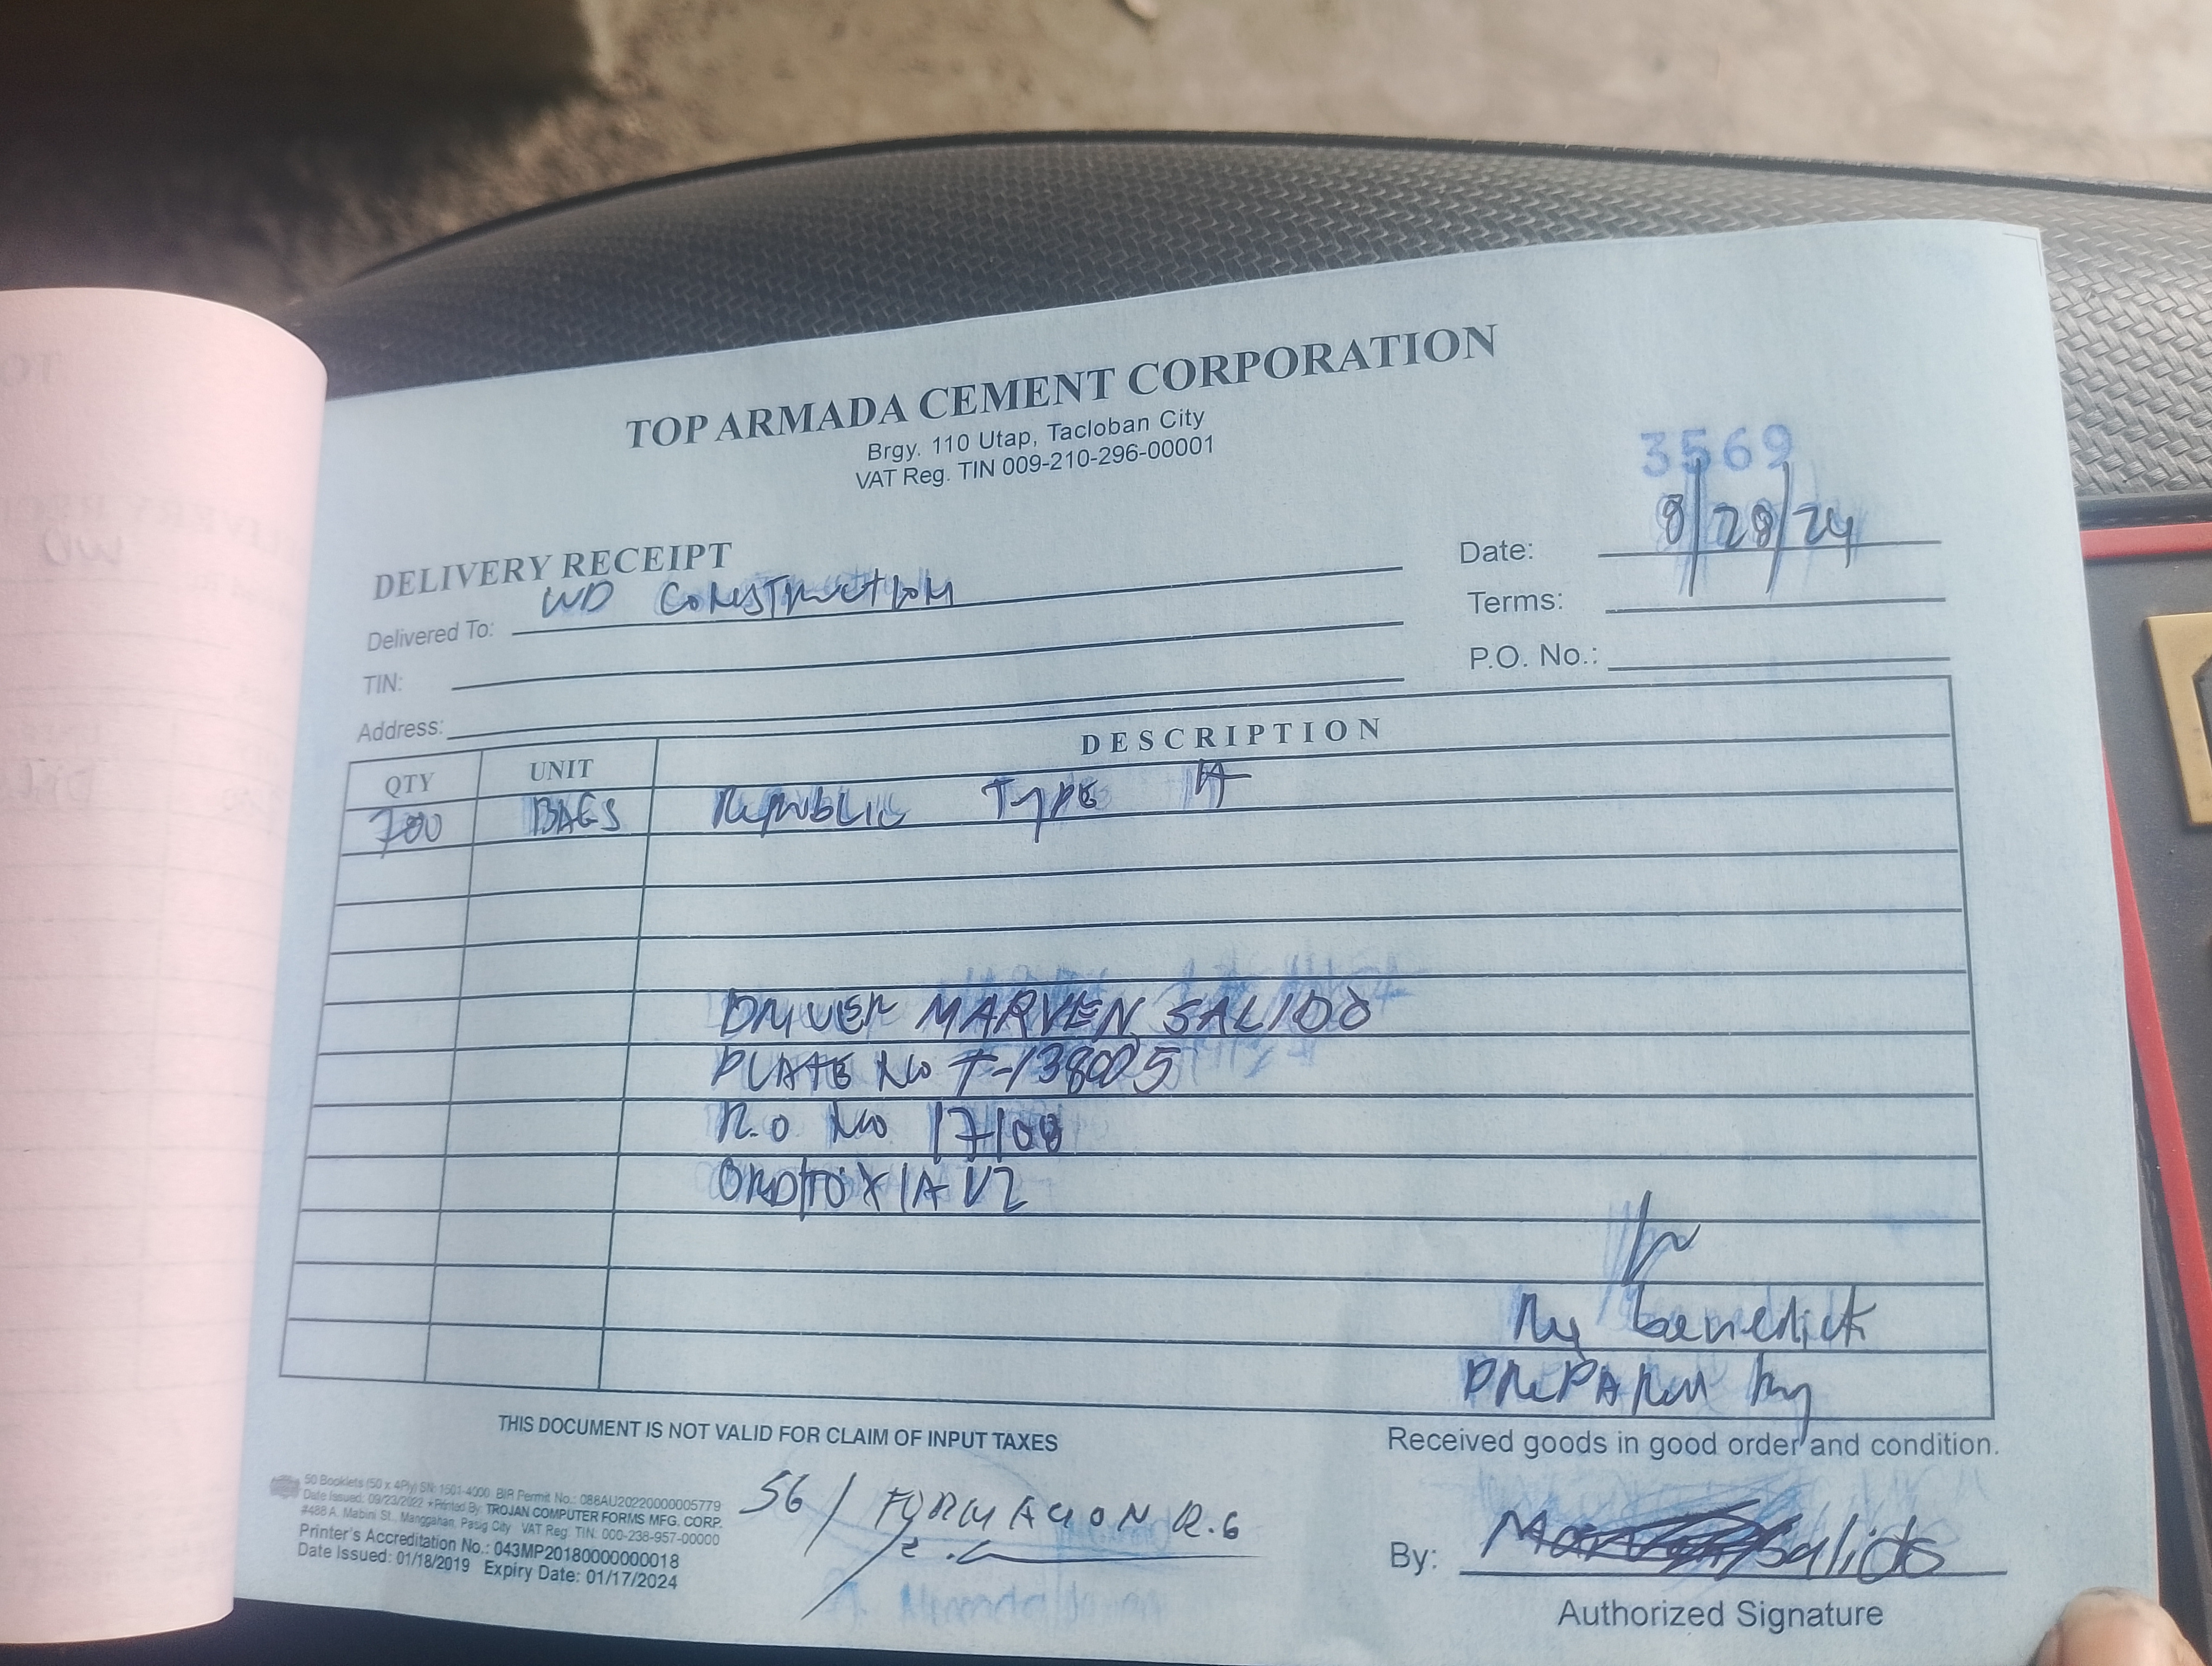 TOP ARMADA CEMENT CORPORATION
Brgy. 110 Utap, Tacloban City
VAT Reg. TIN 009-210-296-00001
3569
DELIVERY RECEIPT
Date: 8/28/24
Delivered To: WD Construction
Terms:
TIN:
P.O. No.:
Address:
QTY UNIT DESCRIPTION
700 BAGS Republic Type
DRIVER MARVEN SALIDO
PLATE No T-138005
R.O No 17108
V2
benedick
PREPARED by
THIS DOCUMENT IS NOT VALID FOR CLAIM OF INPUT TAXES
Received goods in good order and condition.
50 Booklets (50 x 4Ply) SN: 1501-4000 BIR Permit No.: 088AU20220000005779
Date Issued: 09/23/2022 • Printed By: TROJAN COMPUTER FORMS MFG. CORP.
#488 A. Mabini St., Manggahan, Pasig City VAT Reg. TIN: 000-238-957-00000
Printer's Accreditation No.: 043MP20180000000018
Date Issued: 01/18/2019 Expiry Date: 01/17/2024
56 / FORMACION R.G
By: Salido
Authorized Signature